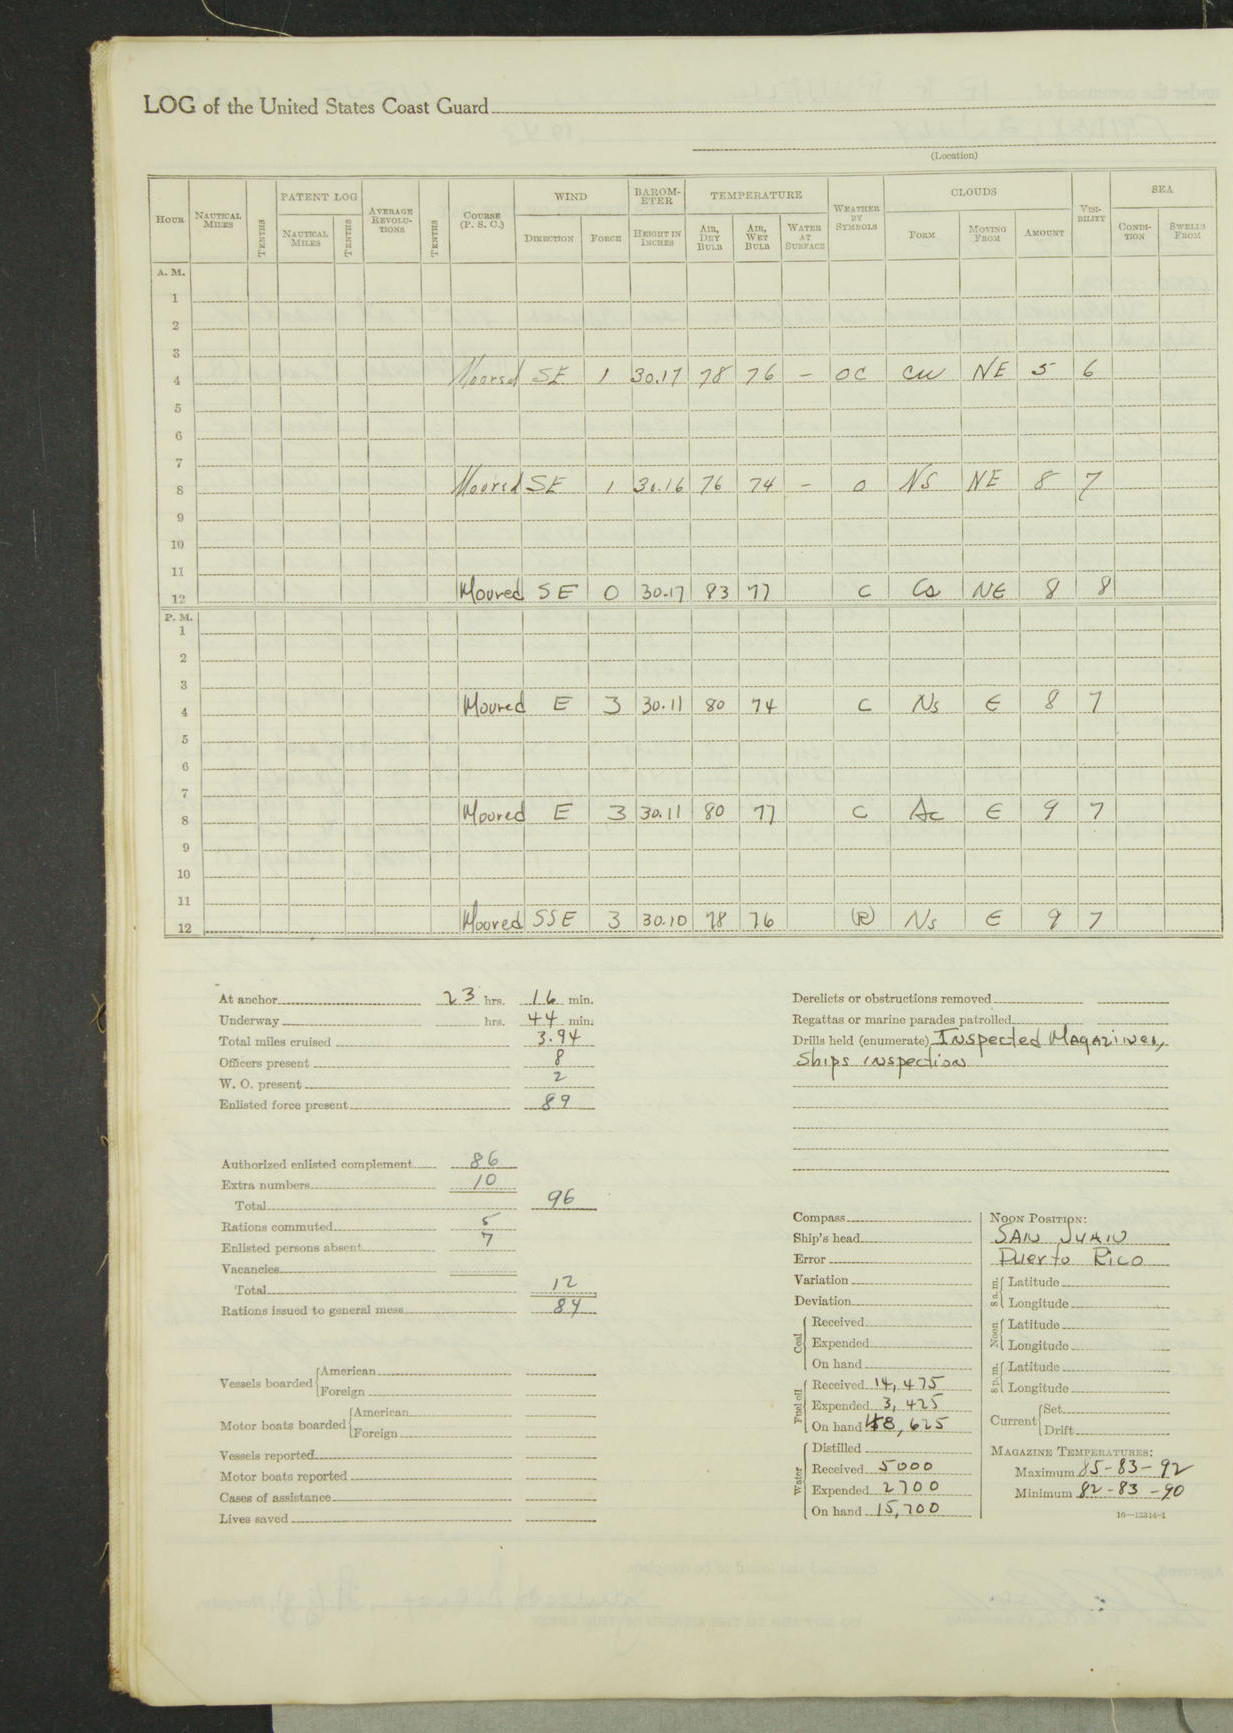 LOG of the United States Coast Guard
(Location)
HOUR NAUTICAL MILES TENTHS PATENT LOG NAUTICAL MILES TENTHS AVERAGE REVOLUTIONS TENTHS COURSE (P. S. C.) WIND DIRECTION FORCE BAROMETER HEIGHT IN INCHES TEMPERATURE AIR, DRY BULB AIR, WET BULB WATER AT SURFACE WEATHER BY SYMBOLS CLOUDS FORM MOVING FROM AMOUNT VISIBILITY SEA CONDITION SWELLS FROM
A. M.
1
2
3
4 Moored SE 1 30.17 78 76 - OC Cu NE 5 6
5
6
7
8 Moored SE 1 30.16 76 74 - O NS NE 8 7
9
10
11
12 Moored SE 0 30.17 83 77 C Cs NE 8 8
P. M.
1
2
3
4 Moored E 3 30.11 80 74 C Ns E 8 7
5
6
7
8 Moored E 3 30.11 80 77 C Ac E 9 7
9
10
11
12 Moored SSE 3 30.10 78 76 (R) Ns E 9 7
At anchor 23 hrs. 16 min.
Underway hrs. 44 min.
Total miles cruised 3.94
Officers present 8
W. O. present 2
Enlisted force present 89
Authorized enlisted complement 86
Extra numbers 10
Total 96
Rations commuted 5
Enlisted persons absent 7
Vacancies
Total 12
Rations issued to general mess 84
Vessels boarded American
Foreign
Motor boats boarded American
Foreign
Vessels reported
Motor boats reported
Cases of assistance
Lives saved
Derelicts or obstructions removed
Regattas or marine parades patrolled
Drills held (enumerate) Inspected Magazines,
Ships inspection
Compass
Ship's head
Error
Variation
Deviation
Coal Received
Expended
On hand
Fuel oil Received 14,475
Expended 3,425
On hand 48,625
Water Distilled
Received 5000
Expended 2700
On hand 15,700
NOON POSITION:
SAN JUAN
Puerto Rico
8 a. m. Latitude
Longitude
Noon Latitude
Longitude
8 p. m. Latitude
Longitude
Current Set
Drift
MAGAZINE TEMPERATURES:
Maximum 85-83-92
Minimum 82-83-90
16—12314-1